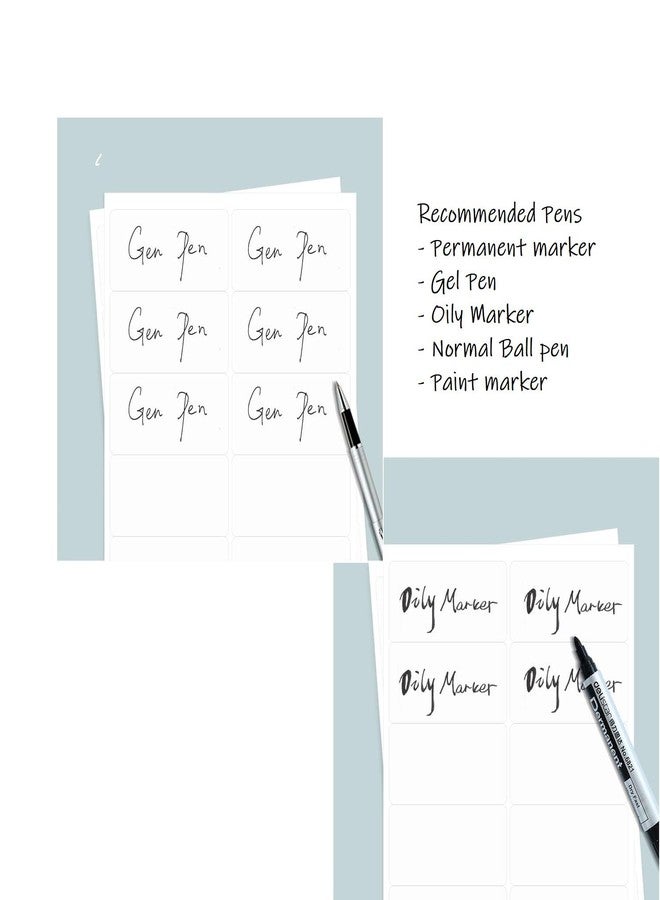 Gen Pen Gen Pen
Gen Pen Gen Pen
Gen Pen Gen Pen
Recommended Pens
- Permanent marker
- Gel Pen
- Oily Marker
- Normal Ball pen
- Paint marker
Oily Marker Oily Marker
Oily Marker Oily Marker
deli
Permanent
Dry Fast